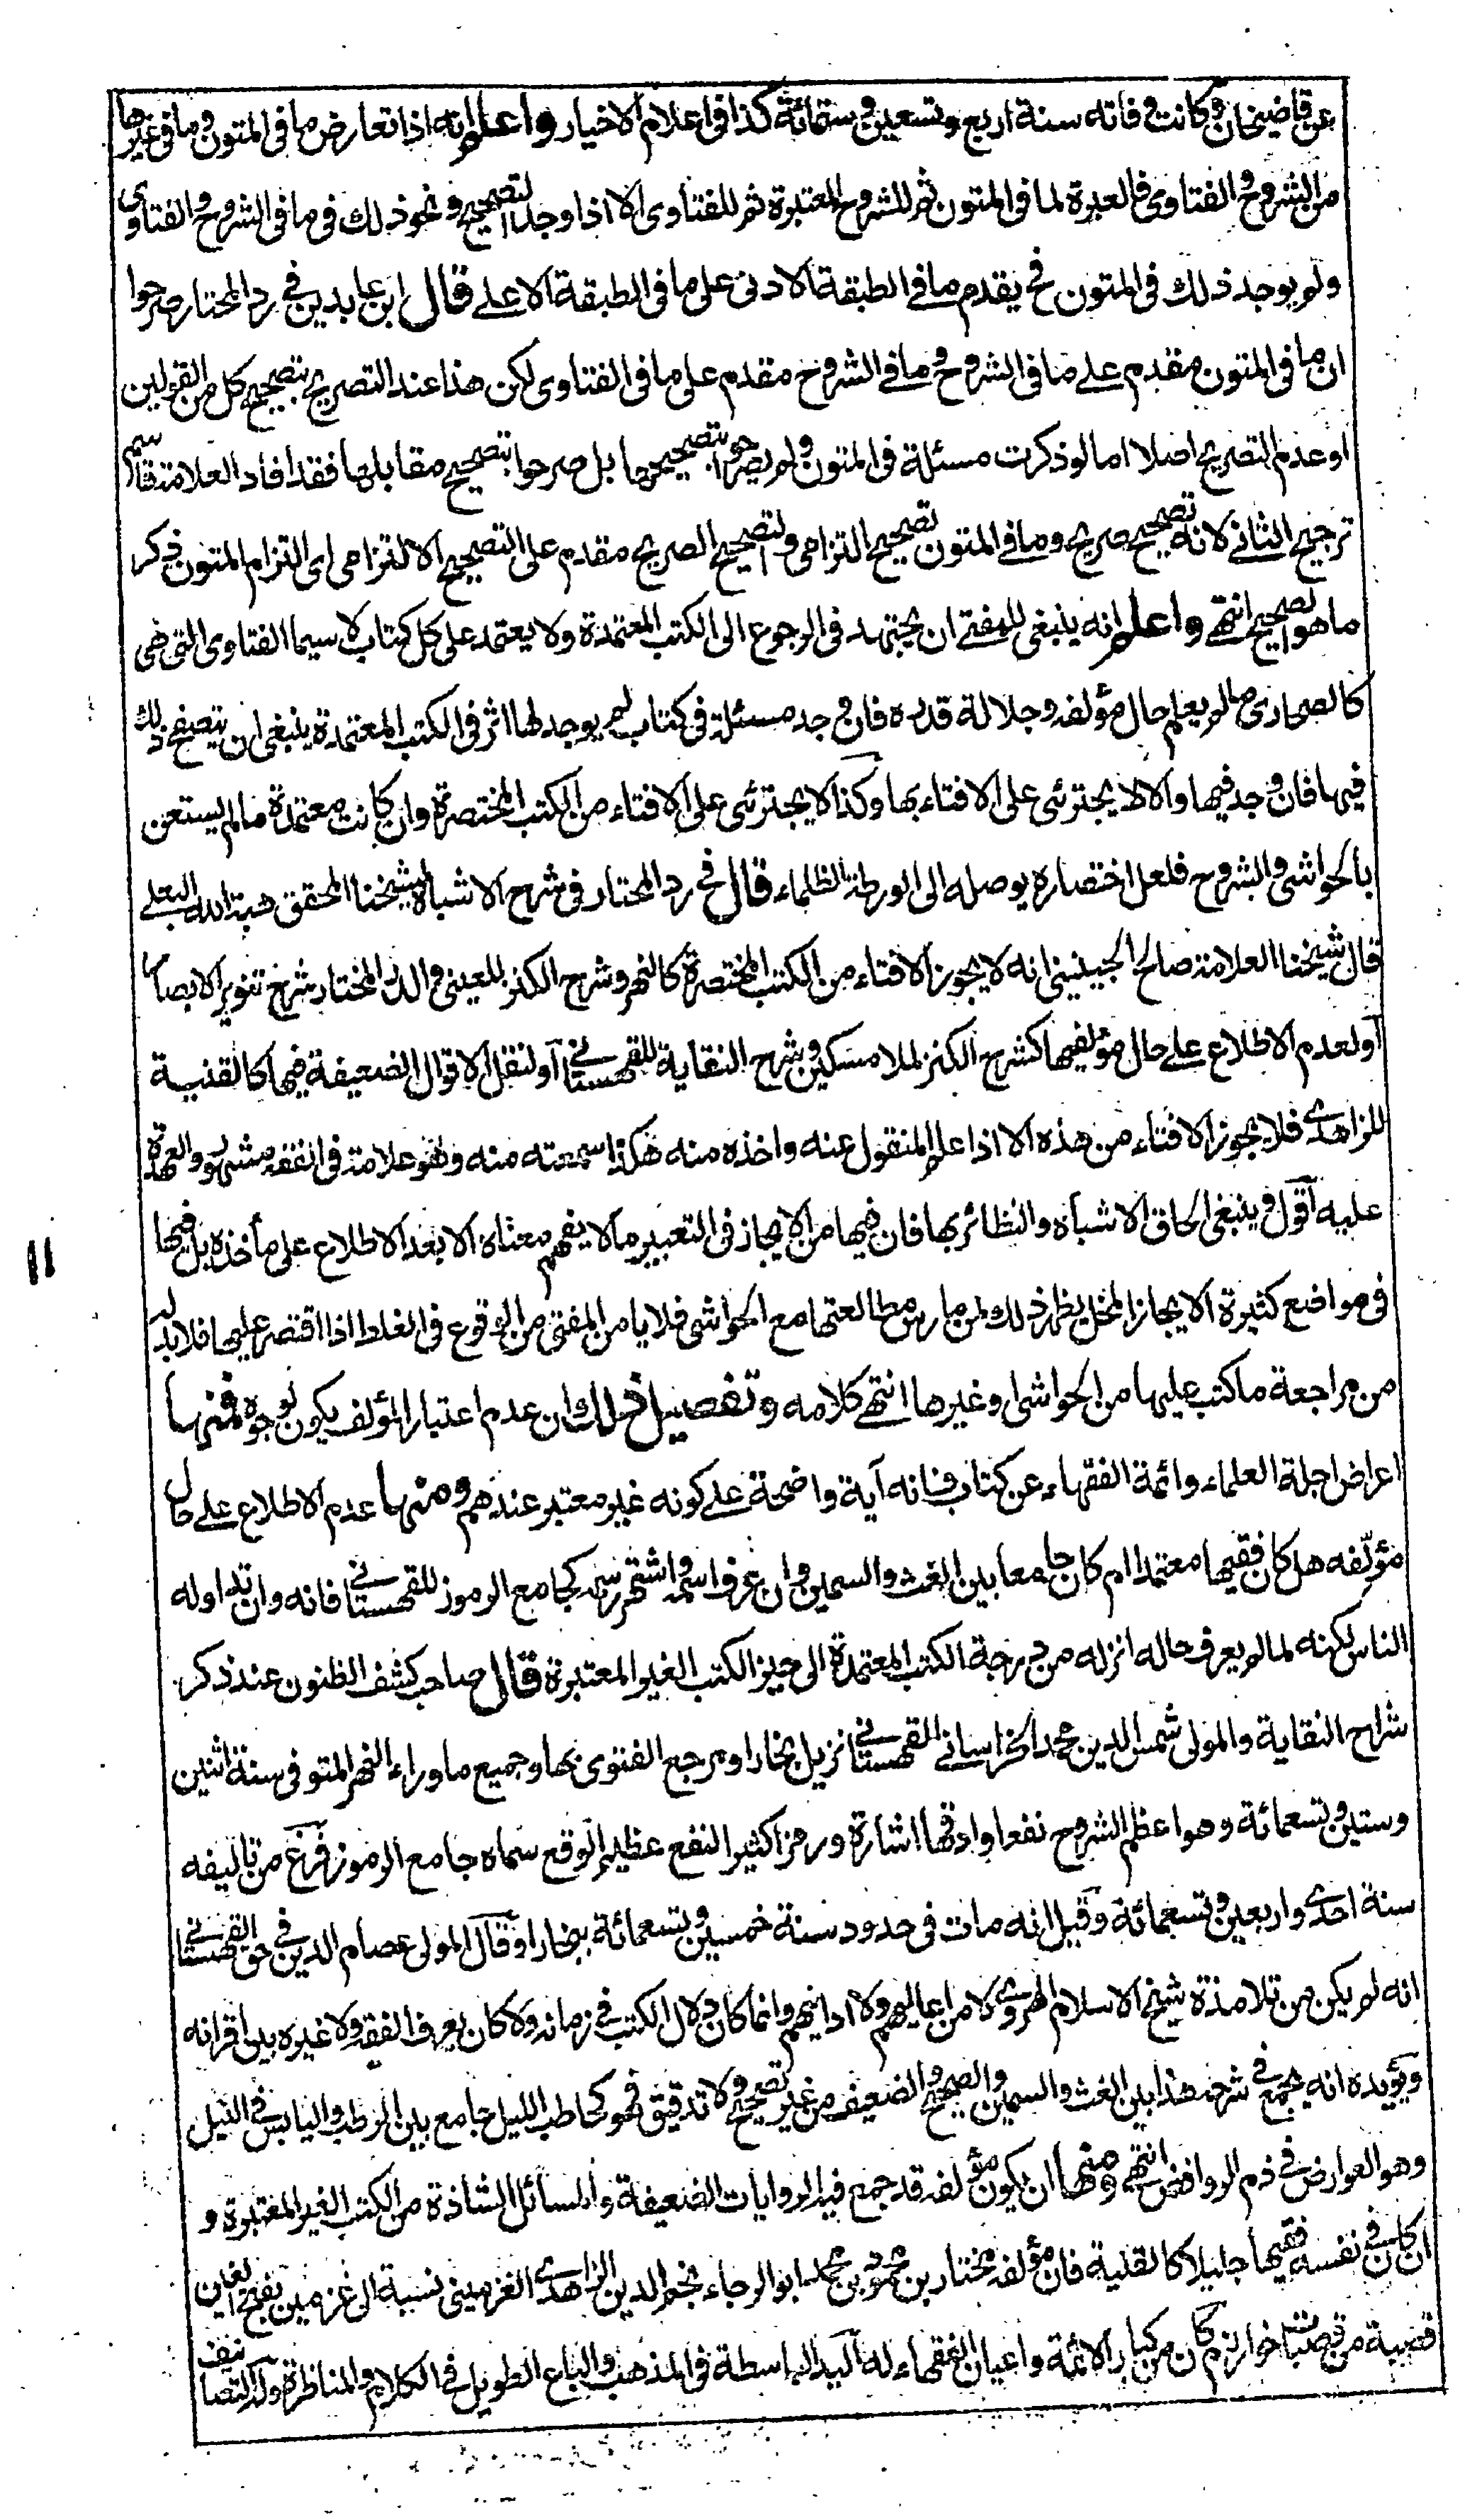 عن قاضيخان وكانت وفاته سنة اربع وتسعين وستمائة كذا في اعلام الاخيار واعلم انه اذا تعارض ما في المتون وما في غيرها
من الشروح والفتاوى فالعبرة لما في المتون ثم للشروح المعتبرة ثم للفتاوى الا اذا وجد التصحيح ونحو ذلك في ما في الشروح والفتاوى
ولم يوجد ذلك في المتون فح يقدم ما في الطبقة الادنى على ما في الطبقة الاعلى قال ابن عابدين في رد المحتار صرحوا
ان ما في المتون مقدم على ما في الشروح وما في الشروح مقدم على ما في الفتاوى لكن هذا عند التصريح بتصحيح كل من القولين
او عدم التصريح اصلا اما لو ذكرت مسئلة في المتون ولم يصرحوا بتصحيحها بل صرحوا بتصحيح مقابلها فقد افاد العلامة قاسم
ترجيح الثاني لانه تصحيح صريح وما في المتون تصحيح التزامي والتصحيح الصريح مقدم على التصحيح الالتزامي اى التزام المتون ذكر
ما هو الصحيح انتهى واعلم انه ينبغي للمفتي ان يجتهد في الرجوع الى الكتب المعتمدة ولا يعتمد على كل كتاب لا سيما الفتاوى التي هي
كالصحارى ما لم يعلم حال مؤلفه وجلالة قدره فان وجد مسئلة في كتاب لم يوجد لها اثر في الكتب المعتمدة ينبغي ان يتصفح ذلك
فيها فان وجد فيها والا لا يجترئ على الافتاء بها وكذا لا يجترئ على الافتاء من الكتب المختصرة وان كانت معتمدة ما لم يستعن
بالحواشي والشروح فلعل اختصاره يوصله الى الورطة الظلماء قال في رد المحتار في شرح الاشباه لشيخنا المحقق هبة الله البعلي
قال شيخنا العلامة صالح الجينيني انه لا يجوز الافتاء من الكتب المختصرة كالنهر وشرح الكنز للعيني والدر المختار شرح تنوير الابصار
او لعدم الاطلاع على حال مؤلفيها كشرح الكنز لملا مسكين وشرح النقاية للقهستاني او لنقل الاقوال الضعيفة فيها كالقنية
للزاهدي فلا يجوز الافتاء من هذه الا اذا علم المنقول عنه واخذه منه هكذا سمعته منه وهو علامة في الفقه مشهور والعهدة
عليه اقول وينبغي الحاق الاشباه والنظائر بها فان فيها من الايجاز في التعبير ما لا يفهم معناه الا بعد الاطلاع على مأخذه بل فيها
في مواضع كثيرة الايجاز المخل يظهر ذلك لمن مارس مطالعتها مع الحواشي فلا يامن المفتي من الوقوع في الغلط اذا اقتصر عليها فلا بد له
من مراجعة ما كتب عليها من الحواشي وغيرها انتهى كلامه وتفصيل ذلك ان عدم اعتبار المؤلف يكون لوجوه فمنها
اعراض اجلة العلماء وائمة الفقهاء عن كتاب فانه آية واضحة على كونه غير معتبر عندهم ومنها عدم الاطلاع على حال
مؤلفه هل كان فقيها معتمدا ام كان جامعا بين الغث والسمين وان عرف اسمه واشتهر رسمه كجامع الرموز للقهستاني فانه وان تداوله
الناس لكنه لما لم يعرف حاله انزله من درجة الكتب المعتمدة الى حيز الكتب الغير المعتبرة قال صاحب كشف الظنون عند ذكر
شراح النقاية والمولى شمس الدين محمد الخراساني القهستاني نزيل بخارا ومرجع الفتوى بها وجميع ما وراء النهر المتوفى سنة اثنين
وستين وتسعمائة وهو اعظم الشروح نفعا وادقها اشارة ورمزا كثير النفع عظيم الوقع سماه جامع الرموز فرغ من تاليفه
سنة احدى واربعين وتسعمائة وقيل انه مات في حدود سنة خمسين وتسعمائة ببخارا وقال المولى عصام الدين في حق القهستاني
انه لم يكن من تلامذة شيخ الاسلام الهروي لا من اعاليهم ولا ادانيهم وانما كان دلال الكتب في زمانه ولا كان يعرف الفقه ولا غيره بين اقرانه
ويؤيده انه يجمع في شرحه هذا بين الغث والسمين والصحيح والضعيف من غير تصحيح ولا تدقيق فهو كحاطب الليل جامع بين الرطب واليابس في النيل
وهو العوارض في ذم الروافض انتهى ومنها ان يكون مؤلفه قد جمع فيه الروايات الضعيفة والمسائل الشاذة من الكتب الغير المعتبرة و
ان كان في نفسه فقيها جليلا كالقنية فان مؤلفه مختار بن محمود بن محمد ابو الرجاء نجم الدين الزاهدي الغزميني نسبة الى غزمين بفتح الغين
قصبة من قصبات خوارزم كان من كبار الائمة واعيان الفقهاء له اليد الباسطة في المذهب والباع الطويل في الكلام والمناظرة وله التصانيف
11